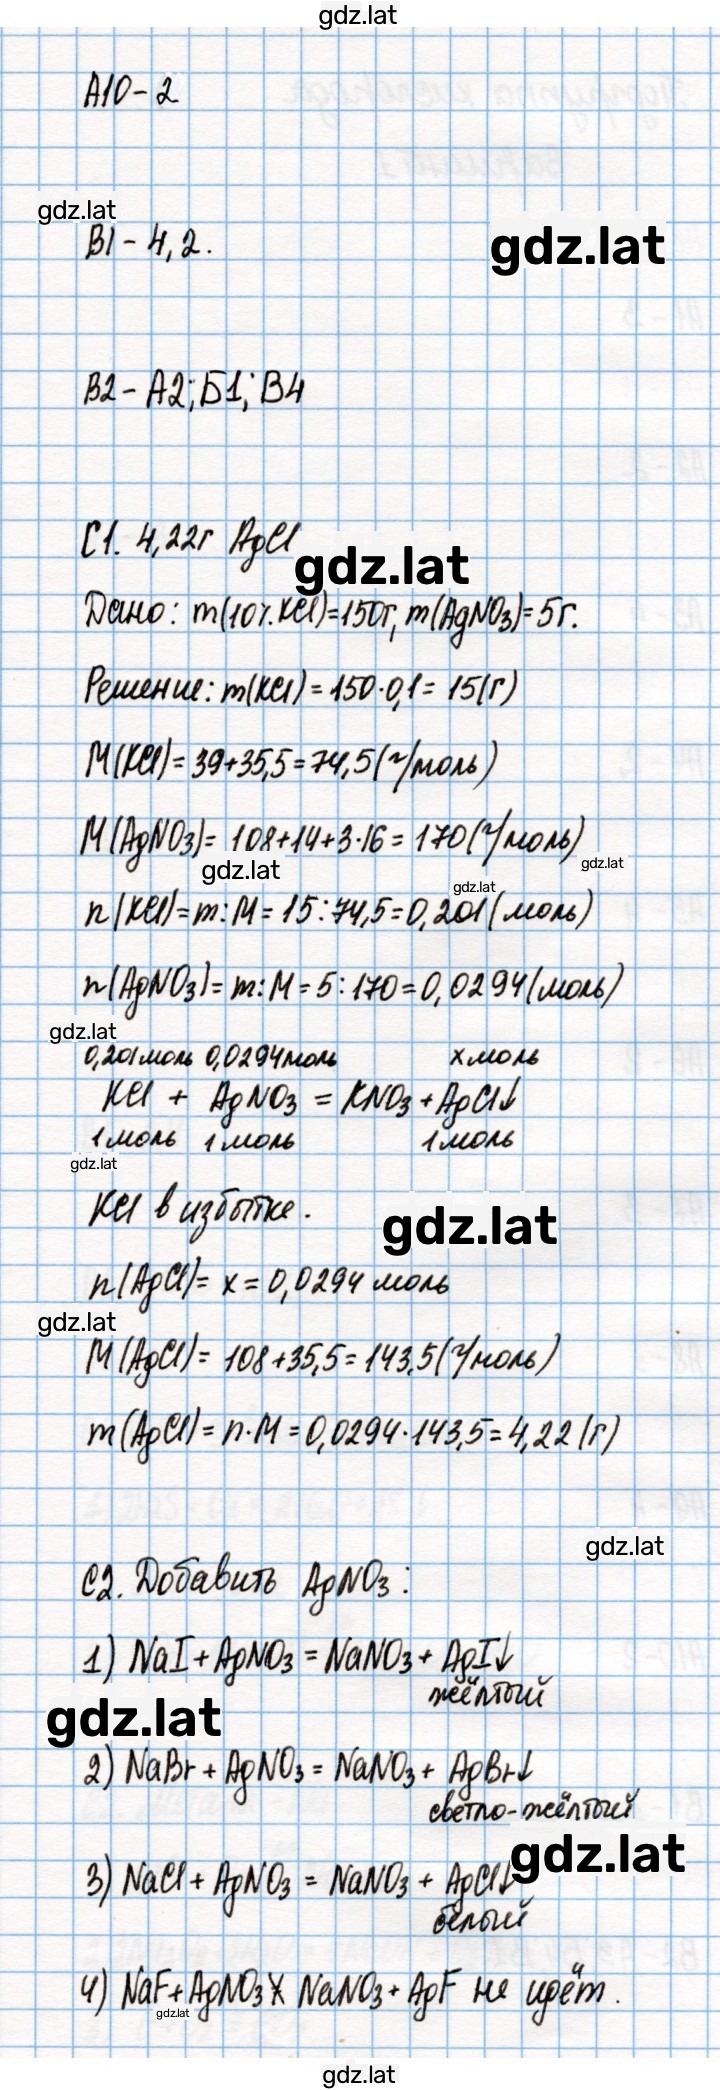 gdz.lat
А10-2
gdz.lat
В1-4,2.
gdz.lat
В2-А2;Б1;В4
С1. 4,22г AgCl
gdz.lat
Дано: m(10%KCl)=150г, m(AgNO3)=5г.
Решение: m(KCl)=150·0,1=15(г)
M(KCl)=39+35,5=74,5(г/моль)
M(AgNO3)=108+14+3·16=170(г/моль)
gdz.lat
gdz.lat
gdz.lat
n(KCl)=m:M=15:74,5=0,201(моль)
n(AgNO3)=m:M=5:170=0,0294(моль)
gdz.lat
0,201моль 0,0294моль x моль
KCl + AgNO3 = KNO3 + AgCl↓
1моль 1моль 1моль
gdz.lat
KCl в избытке.
gdz.lat
n(AgCl)=x=0,0294 моль
gdz.lat
M(AgCl)=108+35,5=143,5(г/моль)
m(AgCl)=n·M=0,0294·143,5=4,22(г)
gdz.lat
С2. Добавить AgNO3:
1) NaI+AgNO3=NaNO3+AgI↓
жёлтый
gdz.lat
2) NaBr+AgNO3=NaNO3+AgBr↓
светло-жёлтый
gdz.lat
3) NaCl+AgNO3=NaNO3+AgCl↓
белый
4) NaF+AgNO3≠NaNO3+AgF не идёт.
gdz.lat
gdz.lat